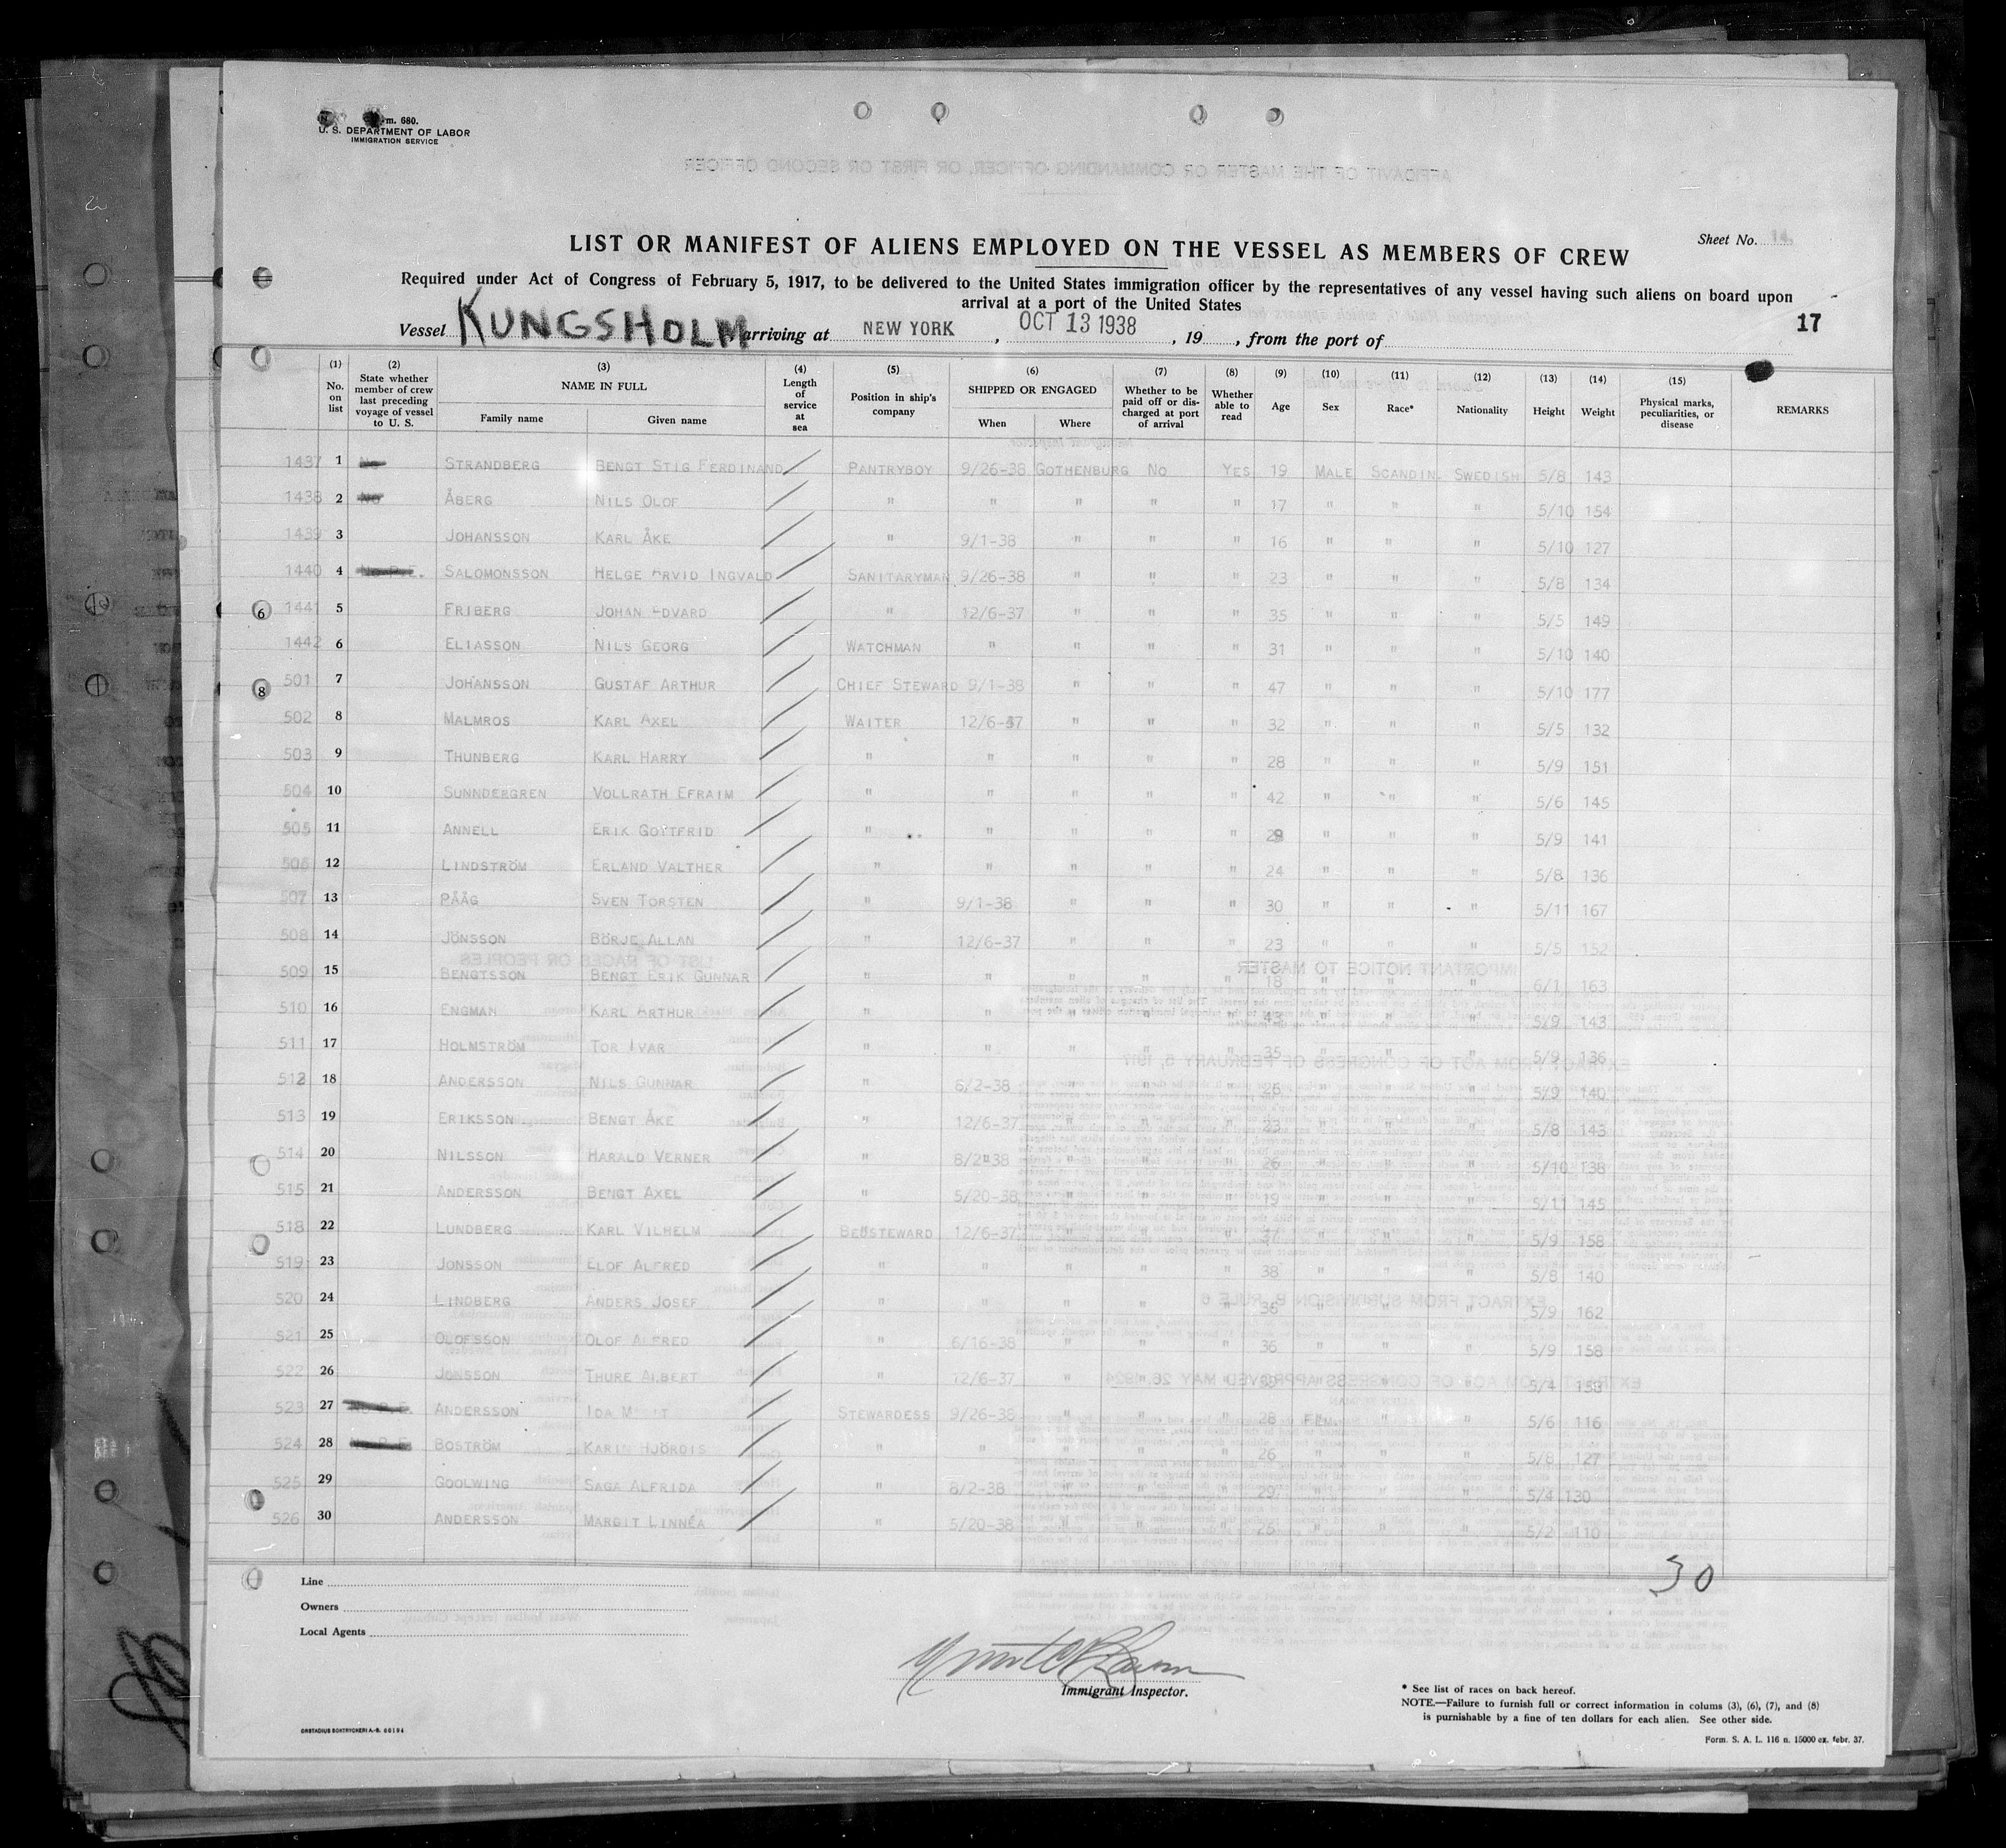 Form. 680.
U. S. DEPARTMENT OF LABOR
IMMIGRATION SERVICE
LIST OR MANIFEST OF ALIENS EMPLOYED ON THE VESSEL AS MEMBERS OF CREW
Sheet No. 14.
Required under Act of Congress of February 5, 1917, to be delivered to the United States immigration officer by the representatives of any vessel having such aliens on board upon
arrival at a port of the United States
Vessel KUNGSHOLM arriving at NEW YORK, OCT 13 1938, 19, from the port of
17
(1) No. on list (2) State whether member of crew last preceding voyage of vessel to U. S. (3) NAME IN FULL Family name Given name (4) Length of service at sea (5) Position in ship's company (6) SHIPPED OR ENGAGED When Where (7) Whether to be paid off or discharged at port of arrival (8) Whether able to read (9) Age (10) Sex (11) Race* (12) Nationality (13) Height (14) Weight (15) Physical marks, peculiarities, or disease REMARKS
1437 1 No STRANDBERG BENGT STIG FERDINAND PANTRYBOY 9/26-38 GOTHENBURG NO YES 19 MALE SCANDIN. SWEDISH 5/8 143
1438 2 No ÅBERG NILS OLOF " " " " " 17 " " " 5/10 154
1439 3 JOHANSSON KARL ÅKE " 9/1-38 " " " 16 " " " 5/10 127
1440 4 No P.E. SALOMONSSON HELGE ARVID INGVALD SANITARYMAN 9/26-38 " " " 23 " " " 5/8 134
6 1441 5 FRIBERG JOHAN EDVARD " 12/6-37 " " " 35 " " " 5/5 149
1442 6 ELIASSON NILS GEORG WATCHMAN " " " " 31 " " " 5/10 140
8 501 7 JOHANSSON GUSTAF ARTHUR CHIEF STEWARD 9/1-38 " " " 47 " " " 5/10 177
502 8 MALMROS KARL AXEL WAITER 12/6-37 " " " 32 " " " 5/5 132
503 9 THUNBERG KARL HARRY " " " " " 28 " " " 5/9 151
504 10 SUNNDERGREN VOLLRATH EFRAIM " " " " " 42 " " " 5/6 145
505 11 ANNELL ERIK GOTTFRID " " " " " 29 " " " 5/9 141
506 12 LINDSTRÖM ERLAND VALTHER " " " " " 24 " " " 5/8 136
507 13 PÅÅG SVEN TORSTEN " 9/1-38 " " " 30 " " " 5/11 167
508 14 JÖNSSON BÖRJE ALLAN " 12/6-37 " " " 23 " " " 5/5 152
509 15 BENGTSSON BENGT ERIK GUNNAR " " " " " 18 " " " 6/1 163
510 16 ENGMAN KARL ARTHUR " " " " " 43 " " " 5/9 143
511 17 HOLMSTRÖM TOR IVAR " " " " " 35 " " " 5/9 136
512 18 ANDERSSON NILS GUNNAR " 6/2-38 " " " 26 " " " 5/9 140
513 19 ERIKSSON BENGT ÅKE " 12/6-37 " " " 23 " " " 5/8 143
514 20 NILSSON HARALD VERNER " 8/2-38 " " " 26 " " " 5/10 138
515 21 ANDERSSON BENGT AXEL " 5/20-38 " " " 19 " " " 5/11 145
518 22 LUNDBERG KARL VILHELM BEDSTEWARD 12/6-37 " " " 37 " " " 5/9 158
519 23 JONSSON ELOF ALFRED " " " " " 38 " " " 5/8 140
520 24 LINDBERG ANDERS JOSEF " " " " " 36 " " " 5/9 162
521 25 OLOFSSON OLOF ALFRED " 6/16-38 " " " 36 " " " 5/9 158
522 26 JONSSON THURE ALBERT " 12/6-37 " " " " " " 5/4 153
523 27 No P.E. ANDERSSON IDA STEWARDESS 9/26-38 " " " 28 FEM. " " 5/6 116
524 28 No P.E. BOSTRÖM KARIN HJÖRDIS " " " " " 26 " " " 5/8 127
525 29 GOOLWING SAGA ALFRIDA " 8/2-38 " " " 29 " " " 5/4 130
526 30 ANDERSSON MARGIT LINNÉA " 5/20-38 " " " 25 " " " 5/2 110
30
Line
Owners
Local Agents
Immigrant Inspector.
* See list of races on back hereof.
NOTE.—Failure to furnish full or correct information in colums (3), (6), (7), and (8)
is punishable by a fine of ten dollars for each alien. See other side.
ORSTADIUS BOKTRYCKERI A.-B. 60194
Form. S. A. L. 116 n. 15000 ex. febr. 37.